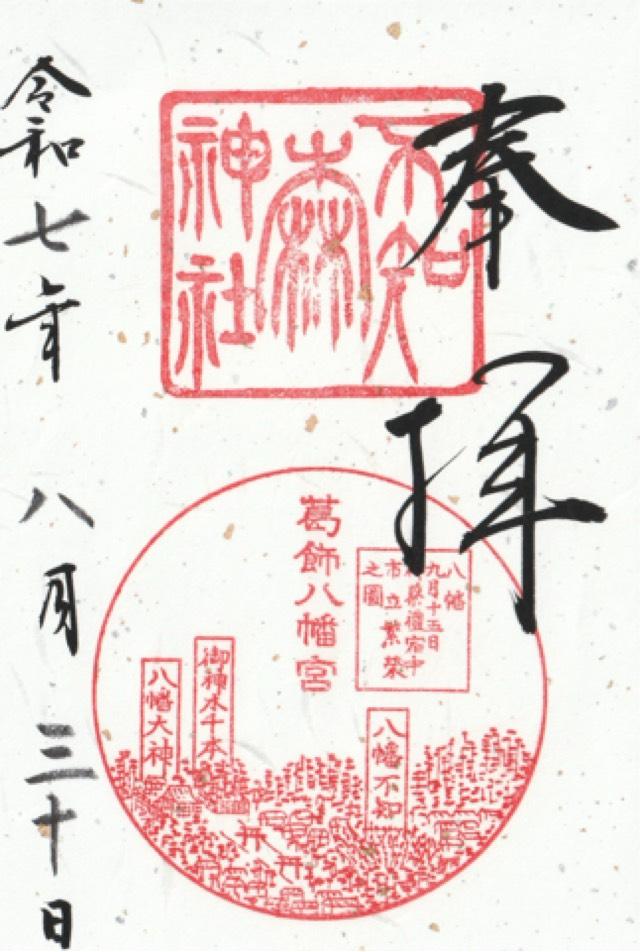 奉拝
不知
森
神社
葛飾八幡宮
八幡
九月十五日
祭禮宿中
市立繁榮
之圖
八幡不知
御神木千本
八幡大神
令和七年八月三十日